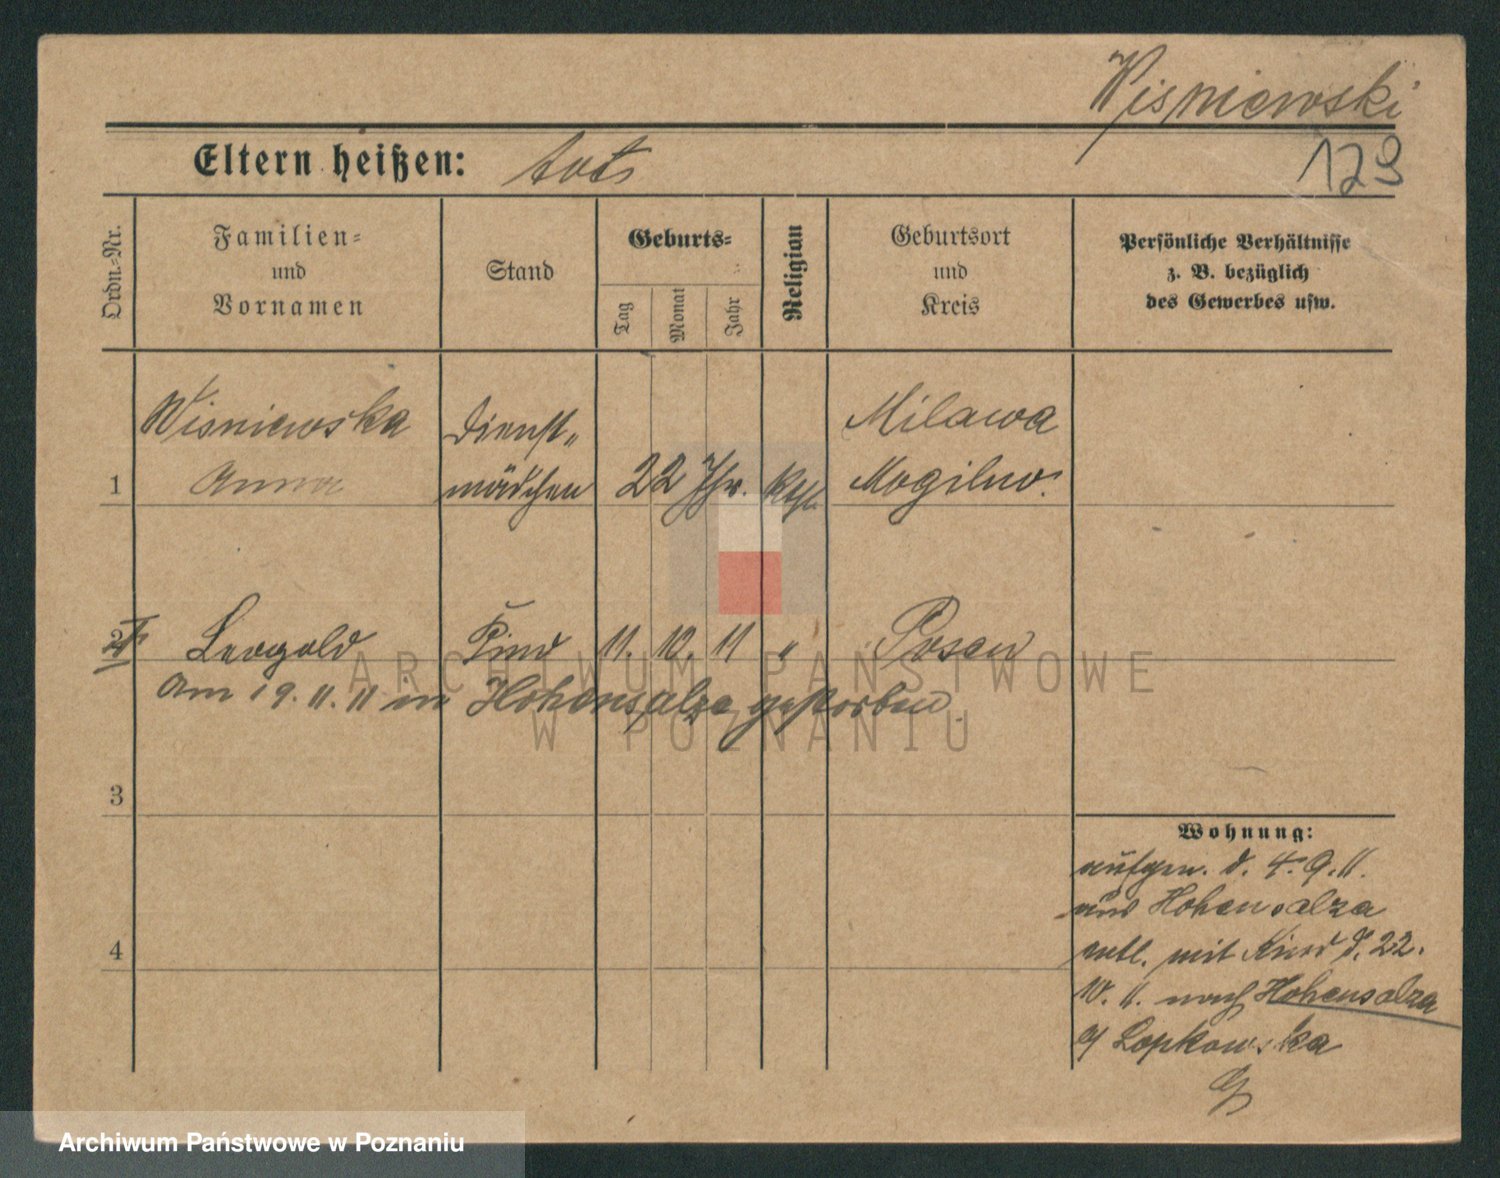 Wisniewski
129
Eltern heißen: tots
Ordn.-Nr.
Familien-
und
Vornamen
Stand
Geburts-
Tag
Monat
Jahr
Religian
Geburtsort
und
Kreis
Persönliche Verhältnisse
z. B. bezüglich
des Gewerbes usw.
Wisniewska Dienst- Milawa
1 Anna mädchen 22 Jhr. kth. Mogilno.
2 Leopold Kind 11. 10. 11 " Posen
Am 19. 11. 11 in Hohensalza gestorben.
3
Wohnung:
aufgen. d. 4. 9. 11.
aus Hohensalza
entl. mit Kind d. 22.
10. 11. nach Hohensalza
Lopkowska
4
ARCHIWUM PAŃSTWOWE
W POZNANIU
Archiwum Państwowe w Poznaniu